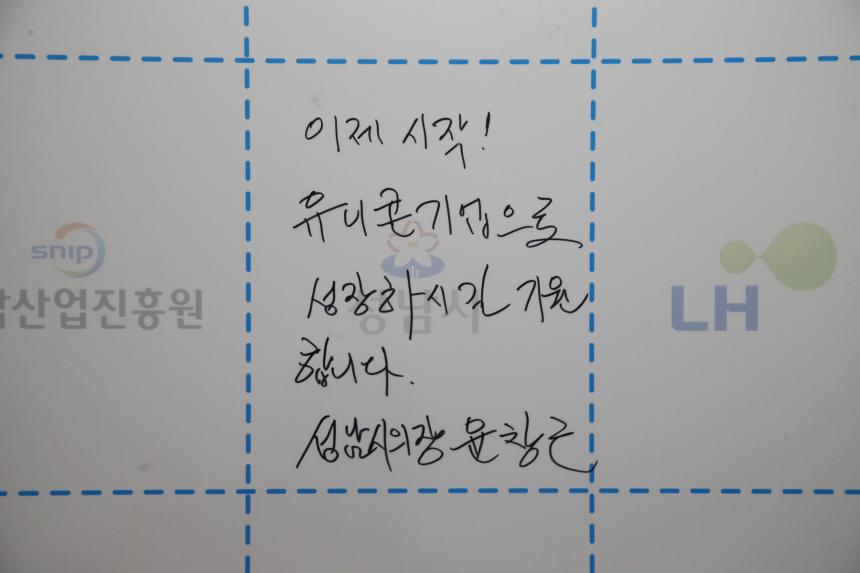 이제 시작!
유니콘기업으로
snip
성장하시길 기원
성남시
산업진흥원
LH
합니다.
성남시의장 윤창근